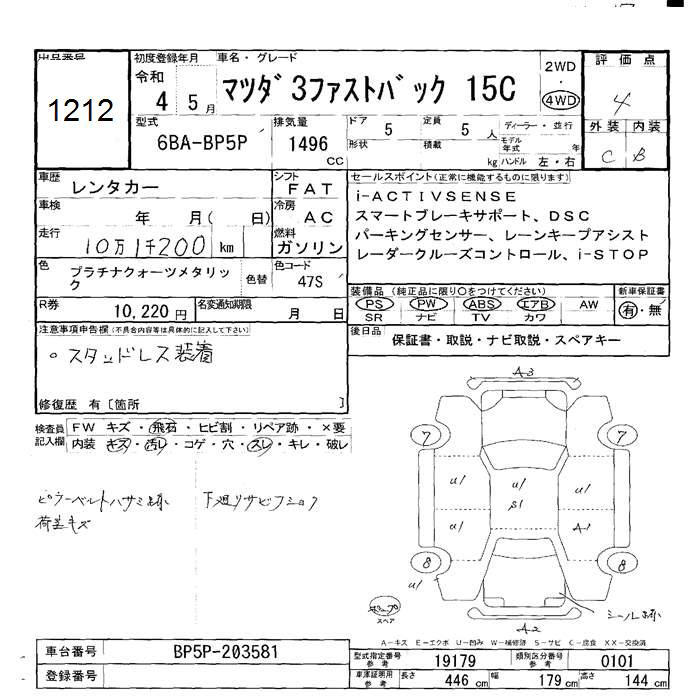 出品番号
1212
初度登録年月
令和
4 5月
車名・グレード
マツダ3ファストバック 15C
2WD
・
4WD
評価点
4
外装 内装
C B
型式
6BA-BP5P
排気量
1496
CC
ドア 5
定員 5 人
形状
積載 kg
ディーラー・並行
モデル年式 年
ハンドル 左・右
車歴
レンタカー
シフト
FAT
車検
年 月( 日)
冷房
AC
走行
10万1千200 km
燃料
ガソリン
色
プラチナクォーツメタリック
色替
色コード
47S
R券
10,220円
名変通知期限
月 日
セールスポイント(正常に機能するものに限ります)
i-ACTIVSENSE
スマートブレーキサポート、DSC
パーキングセンサー、レーンキープアシスト
レーダークルーズコントロール、i-STOP
装備品(純正品に限り○をつけてください)
PS PW ABS エアB AW
SR ナビ TV カワ
新車保証書
有・無
後日品
保証書・取説・ナビ取説・スペアキー
注意事項申告欄(不具合内容等は具体的に記入して下さい)
○スタッドレス装着
修復歴 有〔箇所 〕
検査員記入欄
FW キズ・飛石・ヒビ割・リペア跡・×要
内装 キズ・汚レ・コゲ・穴・スレ・キレ・破レ
下廻りサビ
A-3
7 7
U1 U1
S1
U1 A1
8 8
U1
スペア
A-2
A-キズ E-エクボ U-凹み W-補修跡 S-サビ C-腐食 XX-交換済
車台番号
BP5P-203581
登録番号
型式指定番号
参考
19179
類別区分番号
参考
0101
車庫証明用
参考
長さ 446 cm
幅 179 cm
高さ 144 cm